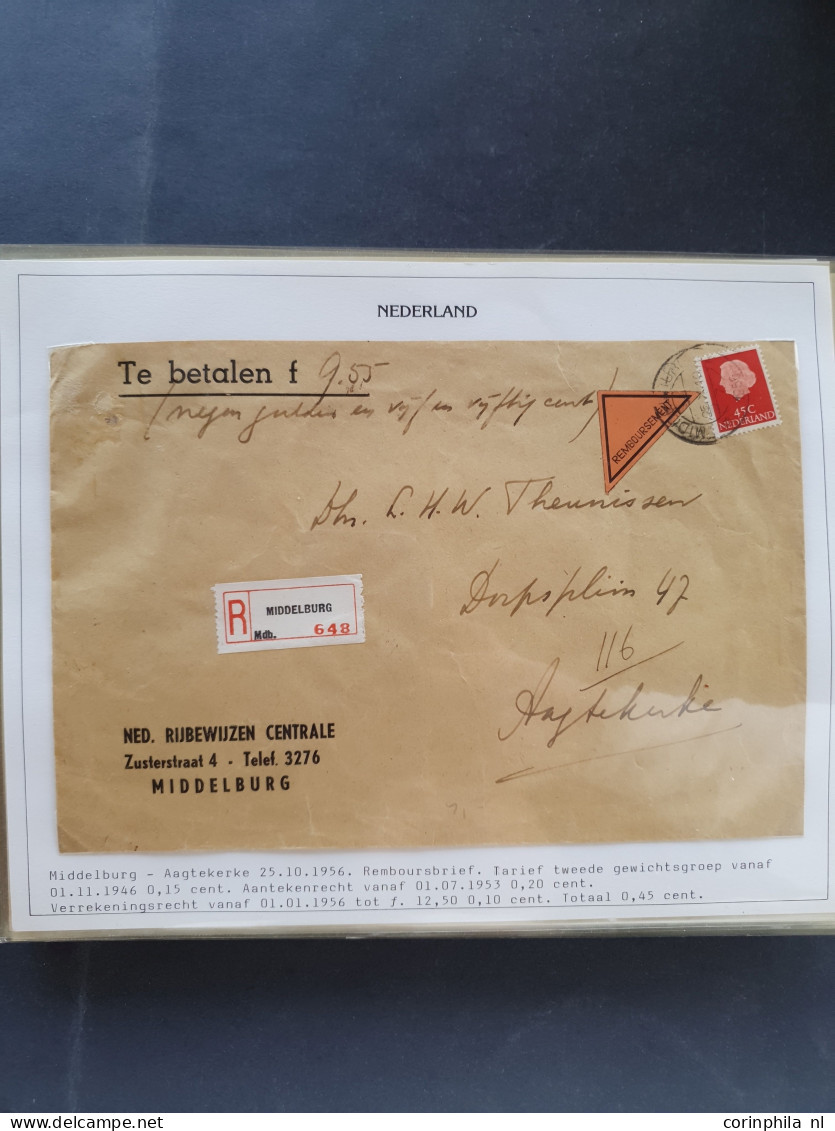 NEDERLAND
Te betalen f 9.55
(negen gulden en vijf en vijftig cent)
REMBOURSEMENT
45 C
NEDERLAND
Dhr. L. H. W. Theunissen
Dorpsplein 47
116
Aagtekerke
R MIDDELBURG
Mdb. 648
NED. RIJBEWIJZEN CENTRALE
Zusterstraat 4 - Telef. 3276
MIDDELBURG
Middelburg - Aagtekerke 25.10.1956. Remboursbrief. Tarief tweede gewichtsgroep vanaf
01.11.1946 0,15 cent. Aantekenrecht vanaf 01.07.1953 0,20 cent.
Verrekeningsrecht vanaf 01.01.1956 tot ƒ. 12,50 0,10 cent. Totaal 0,45 cent.
www.corinphila.nl